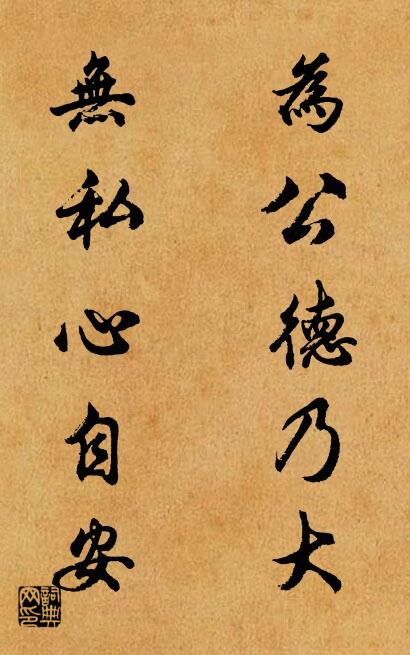 為公德乃大
無私心自安
詞典
网印